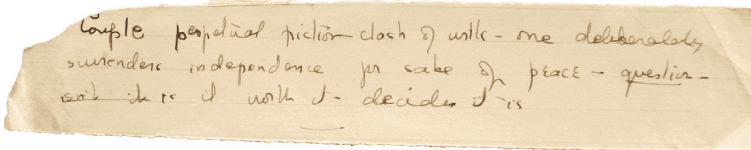 Couple perpetual friction clash of wills - one deliberately
surrenders independence for sake of peace - question -
is it worth it - decides it is